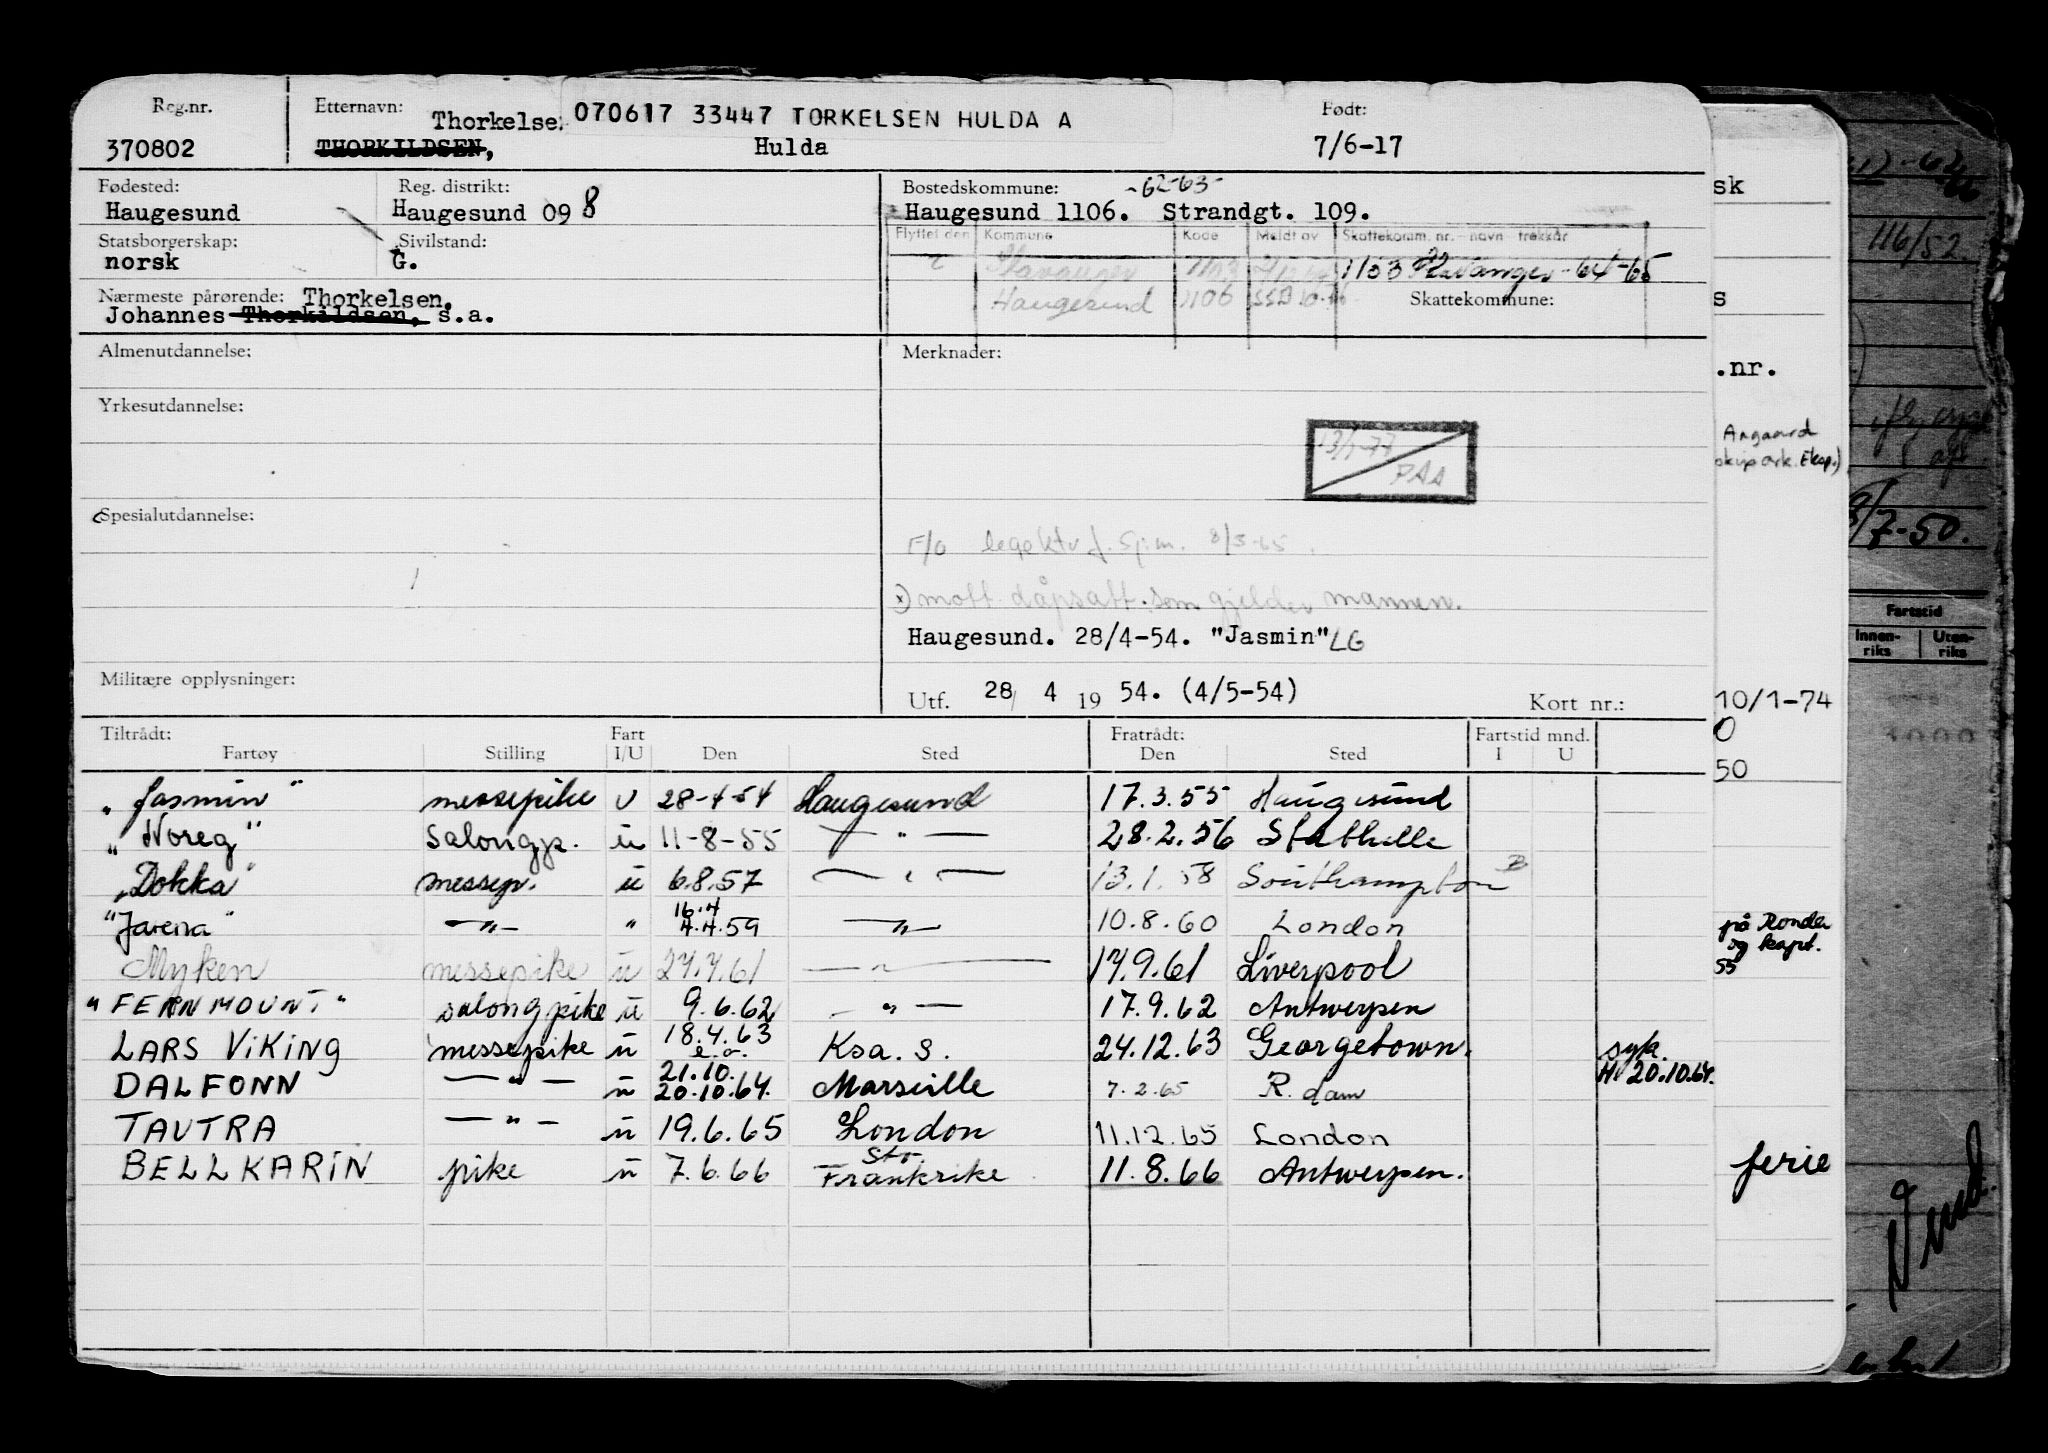 Reg.nr. Etternavn: Født:
Thorkelse 070617 33447 TORKELSEN HULDA A
370802 THORKILDSEN, Hulda 7/6-17
Fødested: Reg. distrikt: Bostedskommune: -62-63-
Haugesund Haugesund 098 Haugesund 1106. Strandgt. 109.
Statsborgerskap: Sivilstand: Flyttet den Kommune Kode Meldt av Skattekomm. nr. - navn trekkår
norsk G. Stavanger 1103 1103 Stavanger - 64-65
Nærmeste pårørende: Thorkelsen. Haugesund 1106 Skattekommune:
Johannes Thorkildsen, s.a.
Almenutdannelse: Merknader:
Yrkesutdannelse:
13/1-77
PAA
Spesialutdannelse:
F/o legektr f. Sjøm. 8/3-65.
x) mott. dåpsatt. som gjelder mannen.
Haugesund. 28/4-54. "Jasmin" LG
Militære opplysninger:
Utf. 28/ 4 19 54. (4/5-54) Kort nr.:
Tiltrådt: Fart Fratrådt: Fartstid mnd.
Fartøy Stilling I/U Den Sted Den Sted I U
"Jasmin" messepike U 28-4-54 Haugesund 17.3.55 Haugesund
"Noreg" Salongp. ü 11-8-55 — " — 28.2.56 Stathelle
"Dokka" messep. ü 6.8.57 — " — 13.1.58 Southampton B
16.4
"Javena" — " — " 4.4.59 — " — 10.8.60 London
Myken messepike ü 27.4.61 — " — 17.9.61 Liverpool
"FERNMOUNT" salongpike ü 9.6.62 — " — 17.9.62 Antwerpen
LARS VIKING messepike ü 18.4.63 e.o. Ksa. S. 24.12.63 Georgetown. syk.
21.10.
DALFONN — " — ü 20.10.64. Marseille 7.2.65 R.dam 20.10.64.
TAUTRA — " — ü 19.6.65 London 11.12.65 London
BELLKARIN pike ü 7.6.66 Str. Frankrike 11.8.66 Antwerpen.
sk
s
.nr.
Aagaard
10/1-74
0
50
på Ronda
og kapt.
55
ferie
116/52.
/7-50.
Fartstid
Innen-riks Uten-riks